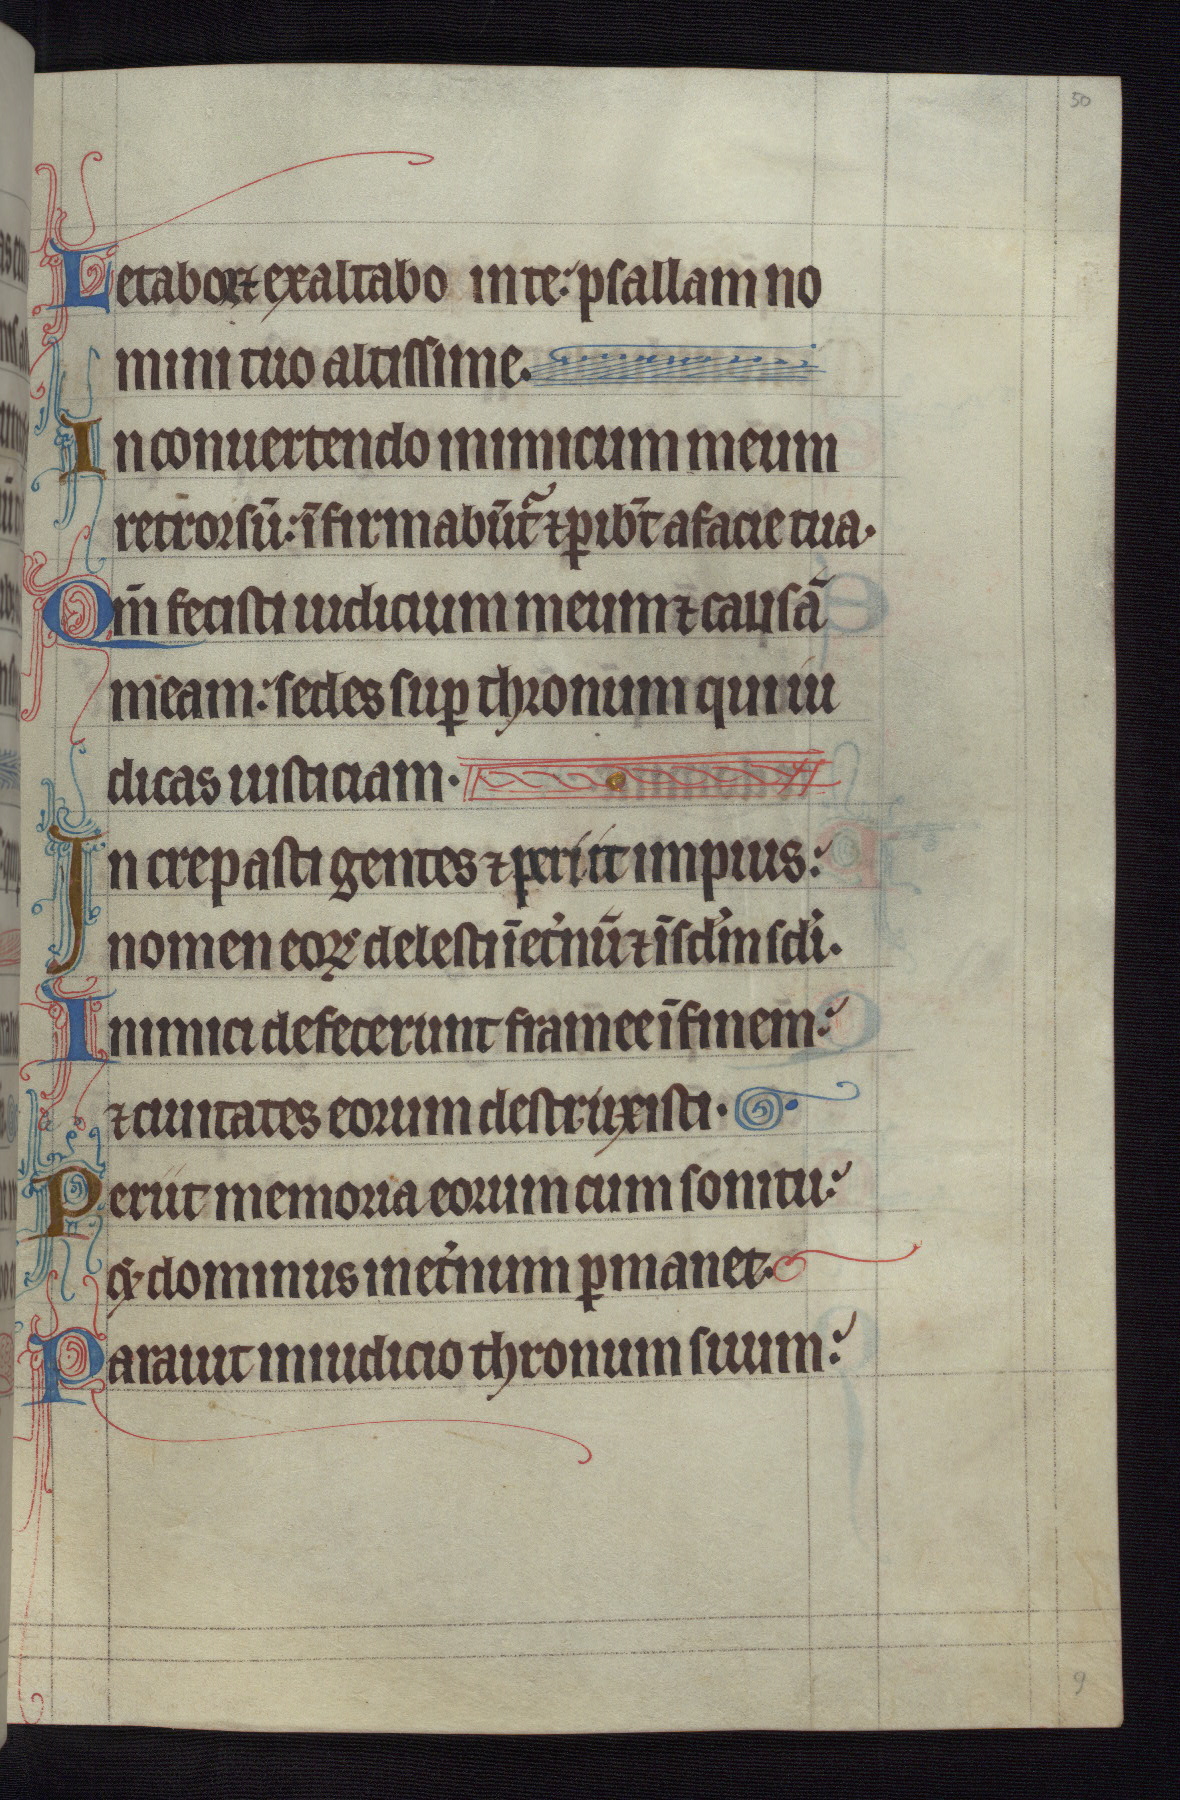 50
Letabor ⁊ exaltabo in te: psallam no
mini tuo altissime.
In conuertendo inimicum meum
retrorsū: īfirmabūt᷑ ⁊ ꝑibūt a facie tua.
Qm̄ fecisti iudicium meum ⁊ causā
meam: sedes suꝑ thronum qui iu
dicas iusticiam.
Increpasti gentes ⁊ periit impius:
nomen eoꝝ delesti īet̾nū ⁊ ī sc̄lm sc̄li.
Inimici defecerunt framee ī finem:
⁊ ciuitates eorum destruxisti.
Periit memoria eorum cum sonitu:
⁊ dominus in et̾num ꝑmanet.
Parauit in iudicio thronum suum:
9